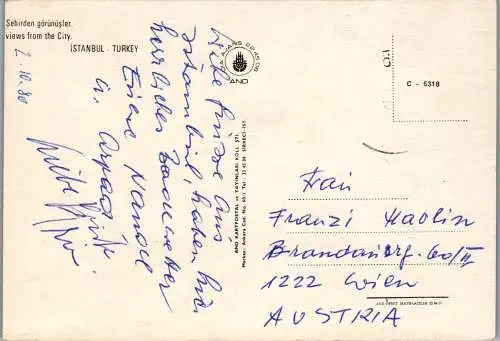 Şehirden görünüşler.
views from the City.
İSTANBUL - TURKEY
2.10.80
Liebe Grüsse aus
Istanbul, haben hier
herrliches Badewetter
Eure Nandl
u. Arpad
Liebe Grüße
AND KARTPOSTAL ve YAYINLARI KOLL. ŞTİ.
AND
C - 5318
Frau
Franzi Haolin
Brandauerg. 60/II
1222 Wien
AUSTRIA